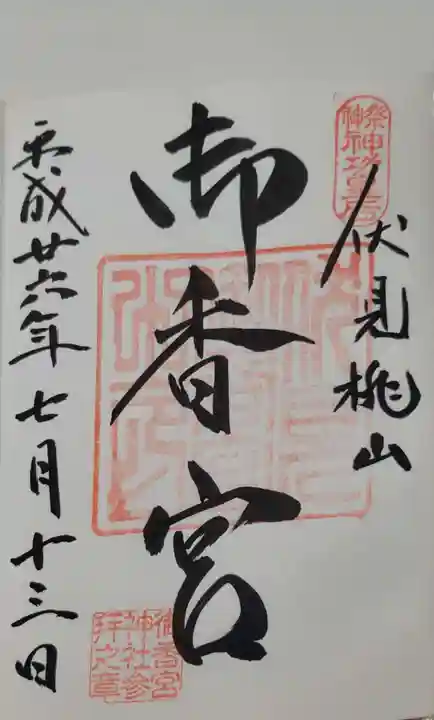 祭神
神功皇后
伏見桃山
御香宮
御香宮
神社参
拝之章
平成廿六年七月十三日